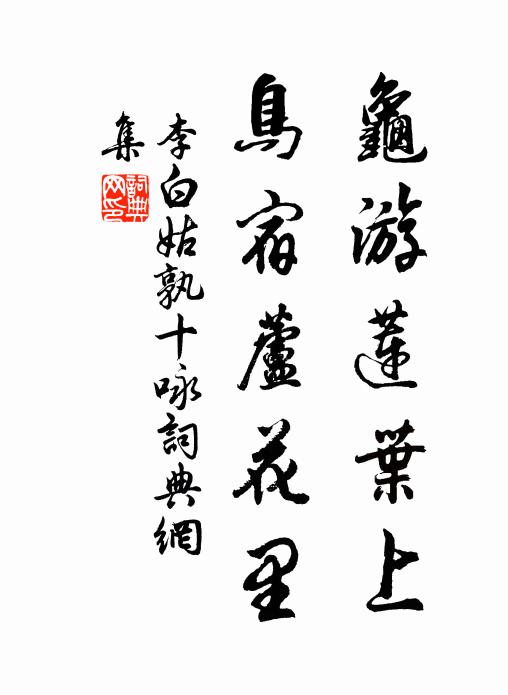 龜游蓮葉上
鳥宿蘆花里
李白姑孰十咏詞典網
集
詞典
网印